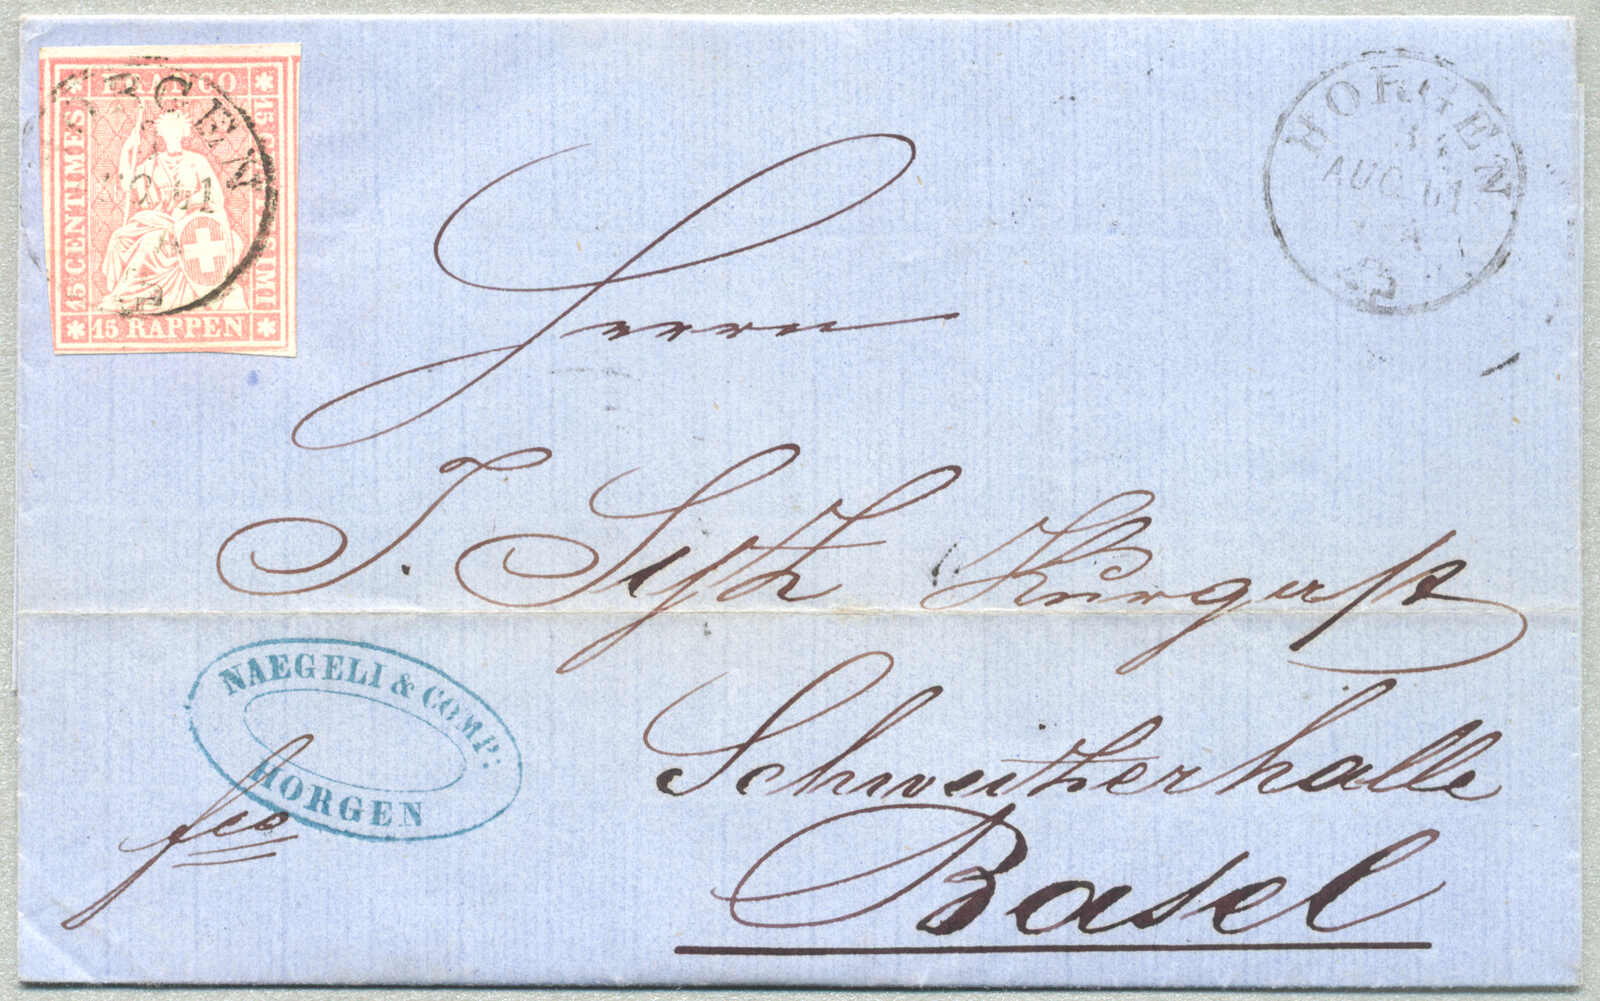 FRANCO
15 CENTIMES
15 CENTESIMI
15 RAPPEN
RGEN
HORGEN
AUG 61
Herrn
J.
Schweitzerhalle
Basel
NAEGELI & COMP:
HORGEN
fco